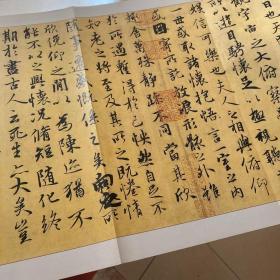 宇宙之大俯
遊目騁懷足以
娛信可樂也夫人之相與俯仰
一世或取諸懷抱悟言一室之內
或因寄所託放浪形骸之外雖
趣舍萬殊靜躁不同當其欣
於所遇暫得於己怏然自足不
知老之將至及其所之既惓情
隨事遷感慨係之矣向之所
欣俛仰之閒以為陳迹猶不
能不以之興懷況脩短隨化終
期於盡古人云死生亦大矣豈